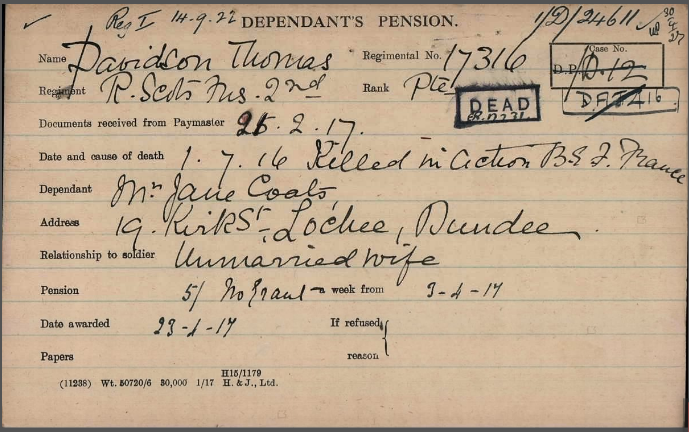 Reg I 14.9.22 DEPENDANT'S PENSION. 1/D/24611
Name Davidson Thomas Regimental No. 17316 Case No.
D.P./D.12
Regiment R. Scots Fus. 2nd Rank Pte DEAD
Documents received from Paymaster 25.2.17.
Date and cause of death 1.7.16 Killed in action B.E.F. France
Dependant Mrs Jane Coats,
Address 19. Kirk St, Lochee, Dundee.
Relationship to soldier Unmarried wife
Pension 5/ No Grant a week from 3-4-17
Date awarded 23-4-17 If refused,
Papers reason
H15/1179
(11238) Wt. 50720/6 30,000 1/17 H. & J., Ltd.